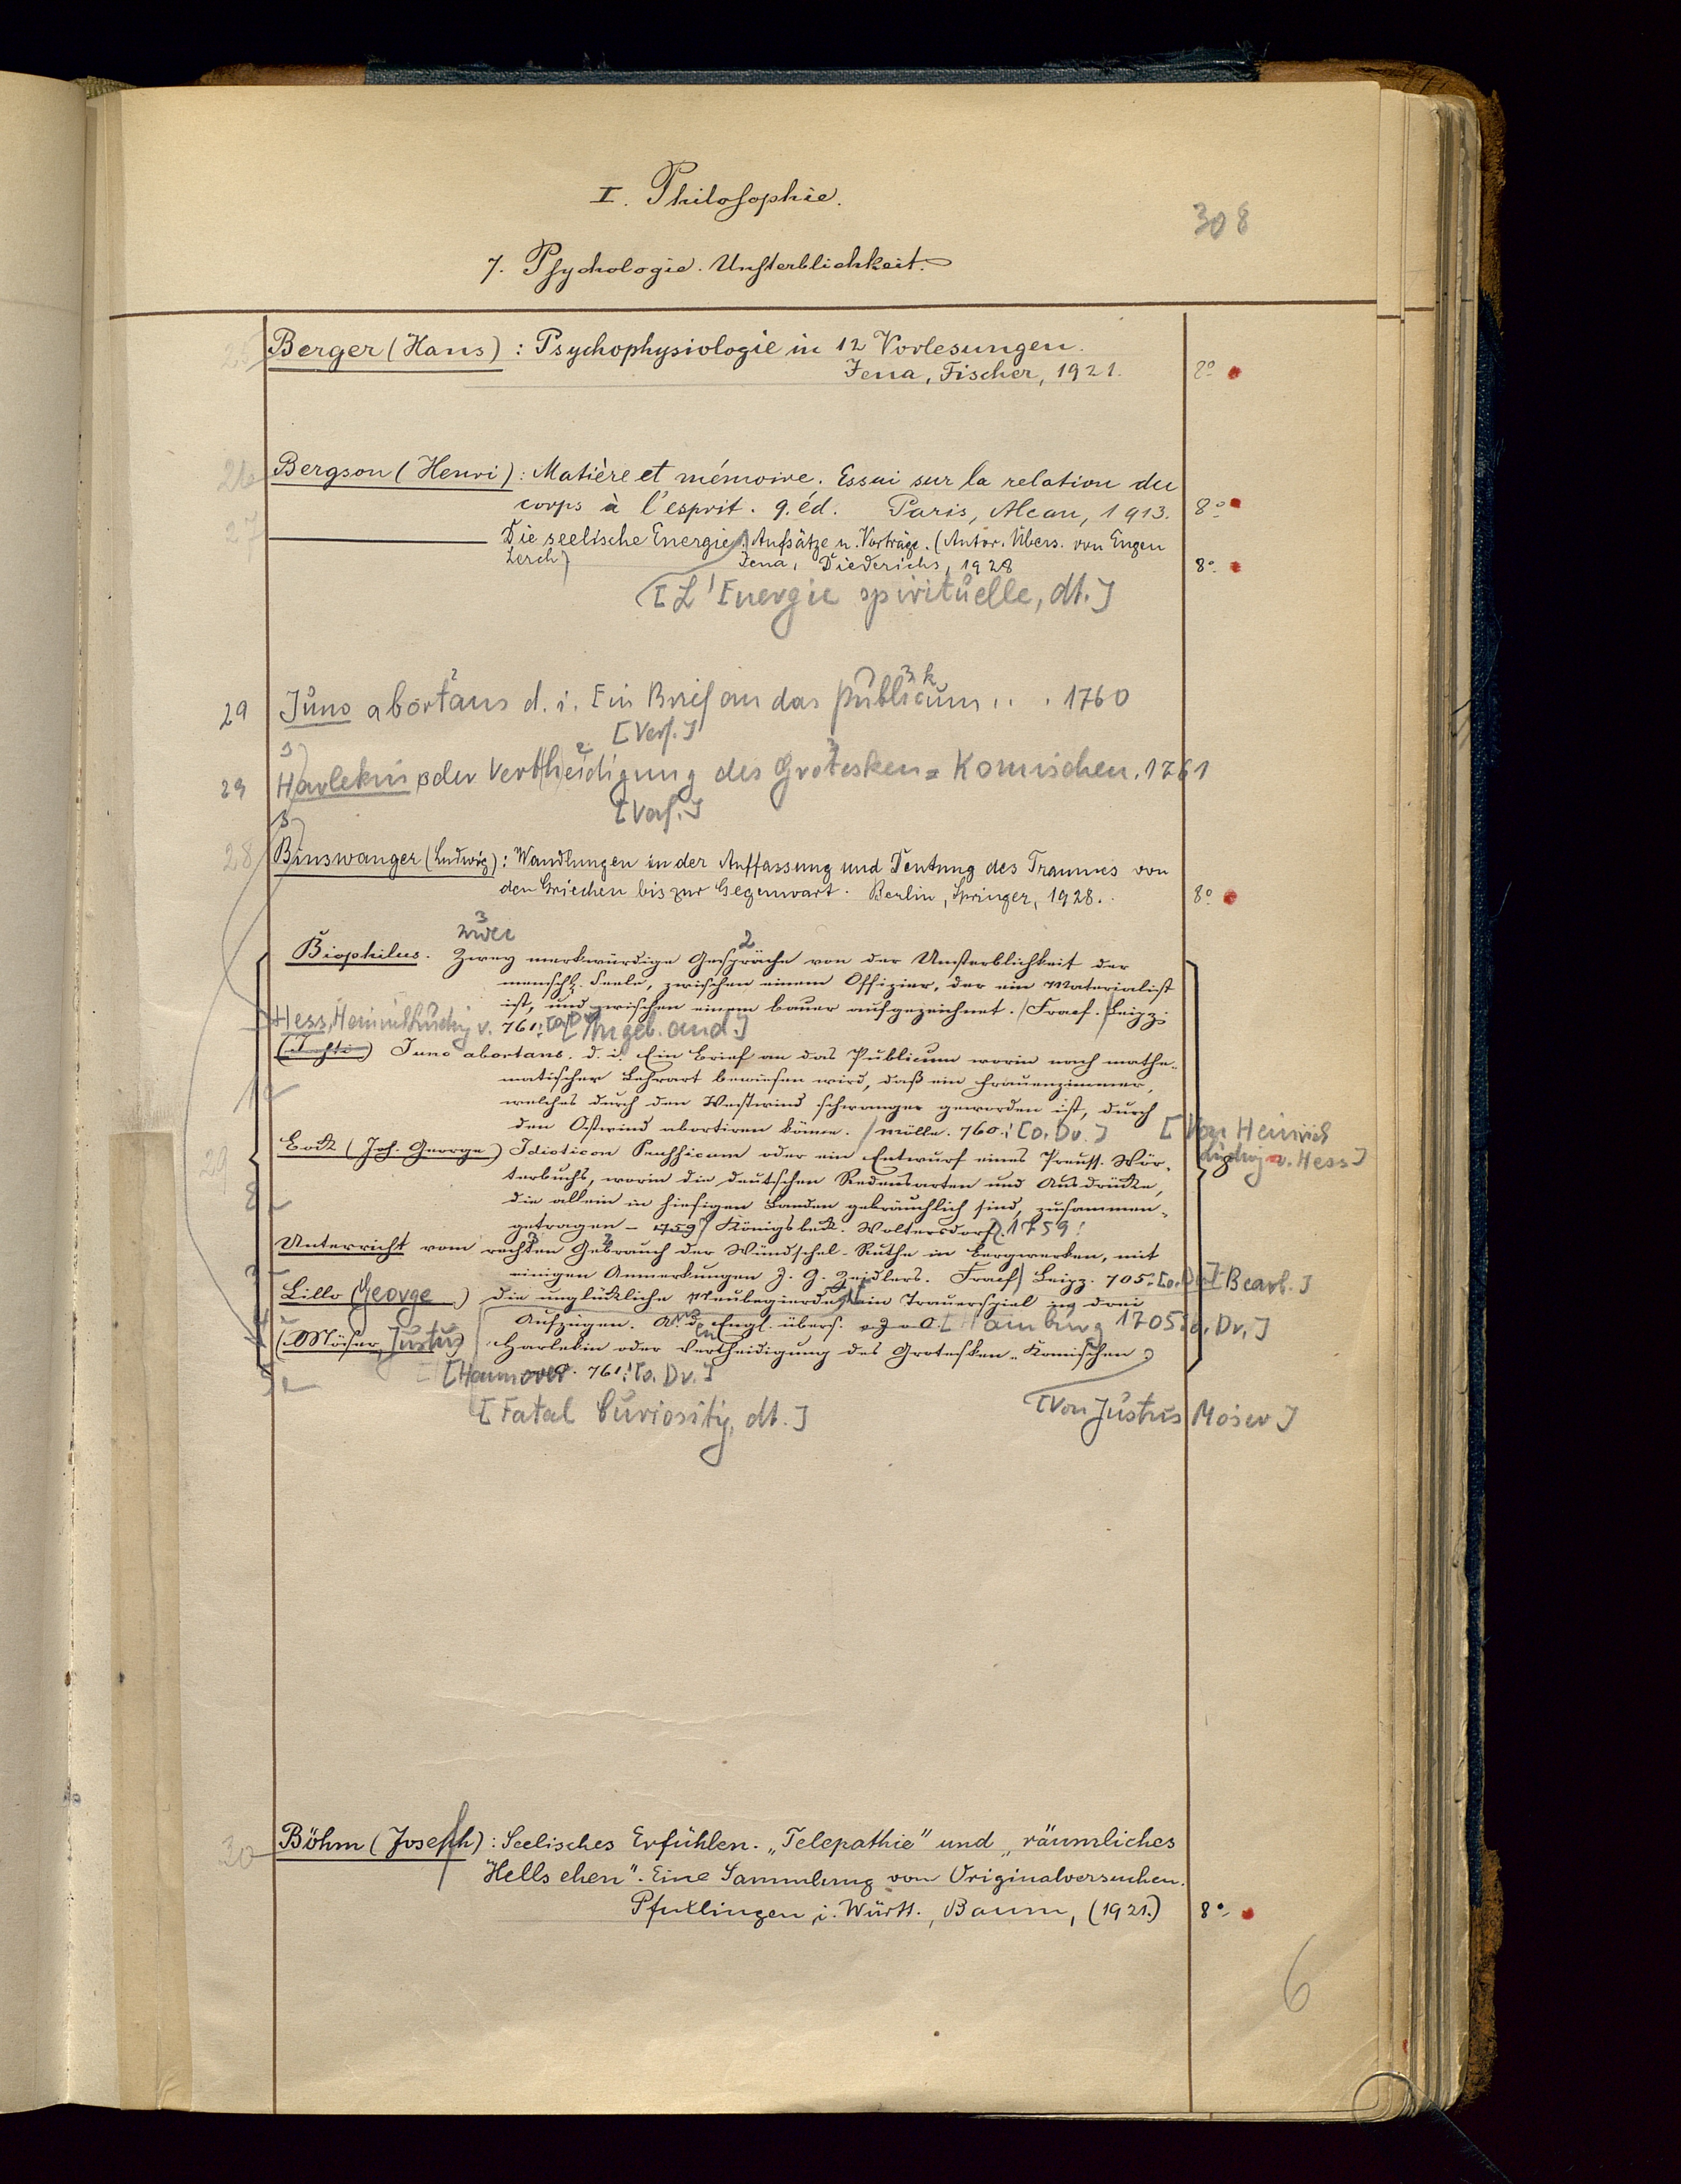 I. Philosophie.
308
7. Psychologie. Unsterblichkeit.
25 Berger (Hans): Psychophysiologie in 12 Vorlesungen.
Jena, Fischer, 1921. 8°
26 Bergson (Henri): Matière et mémoire. Essai sur la relation du
corps à l'esprit. 9. éd. Paris, Alcan, 1913. 8°
27 Die seelische Energie. Aufsätze u. Vorträge. (Autor. Übers. von Eugen
Lerch) Jena, Diederichs, 1928 8°
[L'Energie spirituelle, dt.]
29 Juno abortans d. i. Ein Brief an das Publicum . . . 1760
[Verf.]
29 Harlekin oder Vertheidigung des Grotesken=Komischen. 1761
[Verf.]
28 Binswanger (Ludwig): Wandlungen in der Auffassung und Deutung des Traumes von
den Griechen bis zur Gegenwart. Berlin, Springer, 1928. 8°
Biophilus. Zwey merkwürdige Gespräche von der Unsterblichkeit der
menschl. Seele, zwischen einem Offizier, der ein Materialist
ist, und zwischen einem Bauer aufgezeichnet. Fracf. Leipz.
Hess, Heinrich Ludwig v. 761. [Angeb. and.]
Juno abortans. d. i. Ein Brief an das Publicum worin nach mathe-
matischer Lehrart bewiesen wird, daß ein Frauenzimmer,
welches durch den Westwind schwanger geworden ist, durch
den Ostwind abortiren könne. Mölln. 760. [o. Dr.] [Von Heinrich
Ludwig v. Hess]
Bock (Joh. George) Idioticon Prussicum oder ein Entwurf eines Preuss. Wör-
terbuchs, worin die deutschen Redensarten und Ausdrücke,
die allein in hiesigen Landen gebräuchlich sind, zusammen-
getragen - 759 Königsbeck. Woltersdorf. 1759!
Unterricht vom rechten Gebrauch der Wündschel-Ruthe in Bergwerken, mit
einigen Anmerkungen J. G. Zeidlers. Fracf Leipz. 705. [o. Dr.] [Bearb.]
Lillo (George) Die unglückliche Neubegierde, ein Trauerspiel in drei
Aufzügen. A. d. Engl. übers. [Hamburg 1705 [o. Dr.]
(Möser, Justus) Harlekin oder Vertheidigung des Grotesken-Komischen
[Hannover. 761. [o. Dr.]
[Fatal Curiosity, dt.] [Von Justus Möser]
30 Böhm (Joseph): Seelisches Erfühlen. „Telepathie" und „räumliches
Hellsehen". Eine Sammlung von Originalversuchen.
Pfullingen i. Württ., Baum, (1921.) 8°
6